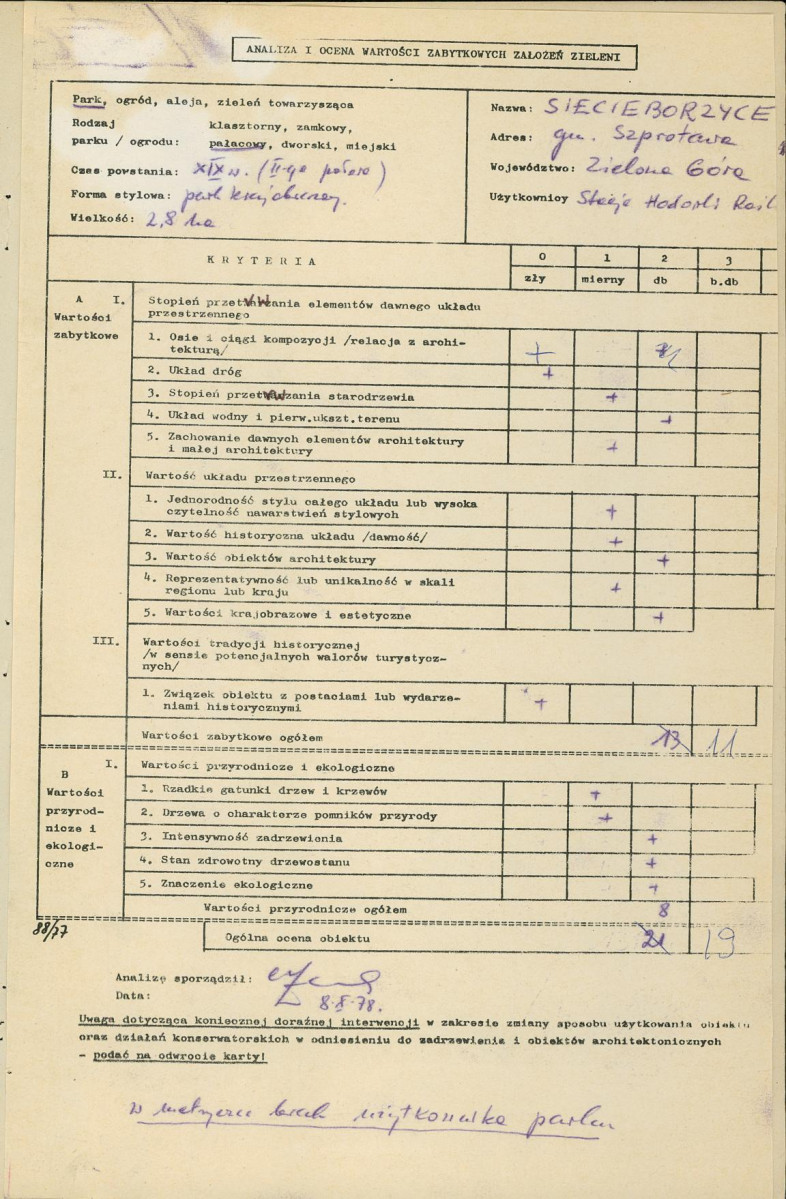 ANALIZA I OCENA WARTOŚCI ZABYTKOWYCH ZAŁOŻEŃ ZIELENI
Park, ogród, aleja, zieleń towarzysząca
Rodzaj klasztorny, zamkowy,
parku / ogrodu: pałacowy, dworski, miejski
Czas powstania: XIX w. (II-ga połowa)
Forma stylowa: park krajobrazowy
Wielkość: 2,8 ha
Nazwa: SIECIEBORZYCE
Adres: gm. Szprotawa
Województwo: Zielona Góra
Użytkownicy Stacja Hodowli Rośl
KRYTERIA
0 1 2 3
zły mierny db b.db
A I. Stopień przetrwania elementów dawnego układu
Wartości przestrzennego
zabytkowe
1. Osie i ciągi kompozycji /relacja z archi-
tekturą/ +
2. Układ dróg +
3. Stopień przetrwania starodrzewia +
4. Układ wodny i pierw.ukszt.terenu +
5. Zachowanie dawnych elementów architektury
i małej architektury +
II. Wartość układu przestrzennego
1. Jednorodność stylu całego układu lub wysoka
czytelność nawarstwień stylowych +
2. Wartość historyczna układu /dawność/ +
3. Wartość obiektów architektury +
4. Reprezentatywność lub unikalność w skali
regionu lub kraju +
5. Wartości krajobrazowe i estetyczne +
III. Wartości tradycji historycznej
/w sensie potencjalnych walorów turystycz-
nych/
1. Związek obiektu z postaciami lub wydarze-
niami historycznymi +
Wartości zabytkowe ogółem 13 11
B I. Wartości przyrodnicze i ekologiczne
Wartości
przyrod-
nicze i
ekologi-
czne
1. Rzadkie gatunki drzew i krzewów +
2. Drzewa o charakterze pomników przyrody +
3. Intensywność zadrzewienia +
4. Stan zdrowotny drzewostanu +
5. Znaczenie ekologiczne +
Wartości przyrodnicze ogółem 8
88/77
Ogólna ocena obiektu 21 19
Analizę sporządził:
Data: 8.X.78.
Uwaga dotycząca koniecznej doraźnej interwencji w zakresie zmiany sposobu użytkowania obiektu
oraz działań konserwatorskich w odniesieniu do zadrzewienia i obiektów architektonicznych
- podać na odwrocie karty!
w metryce brak użytkownika parku